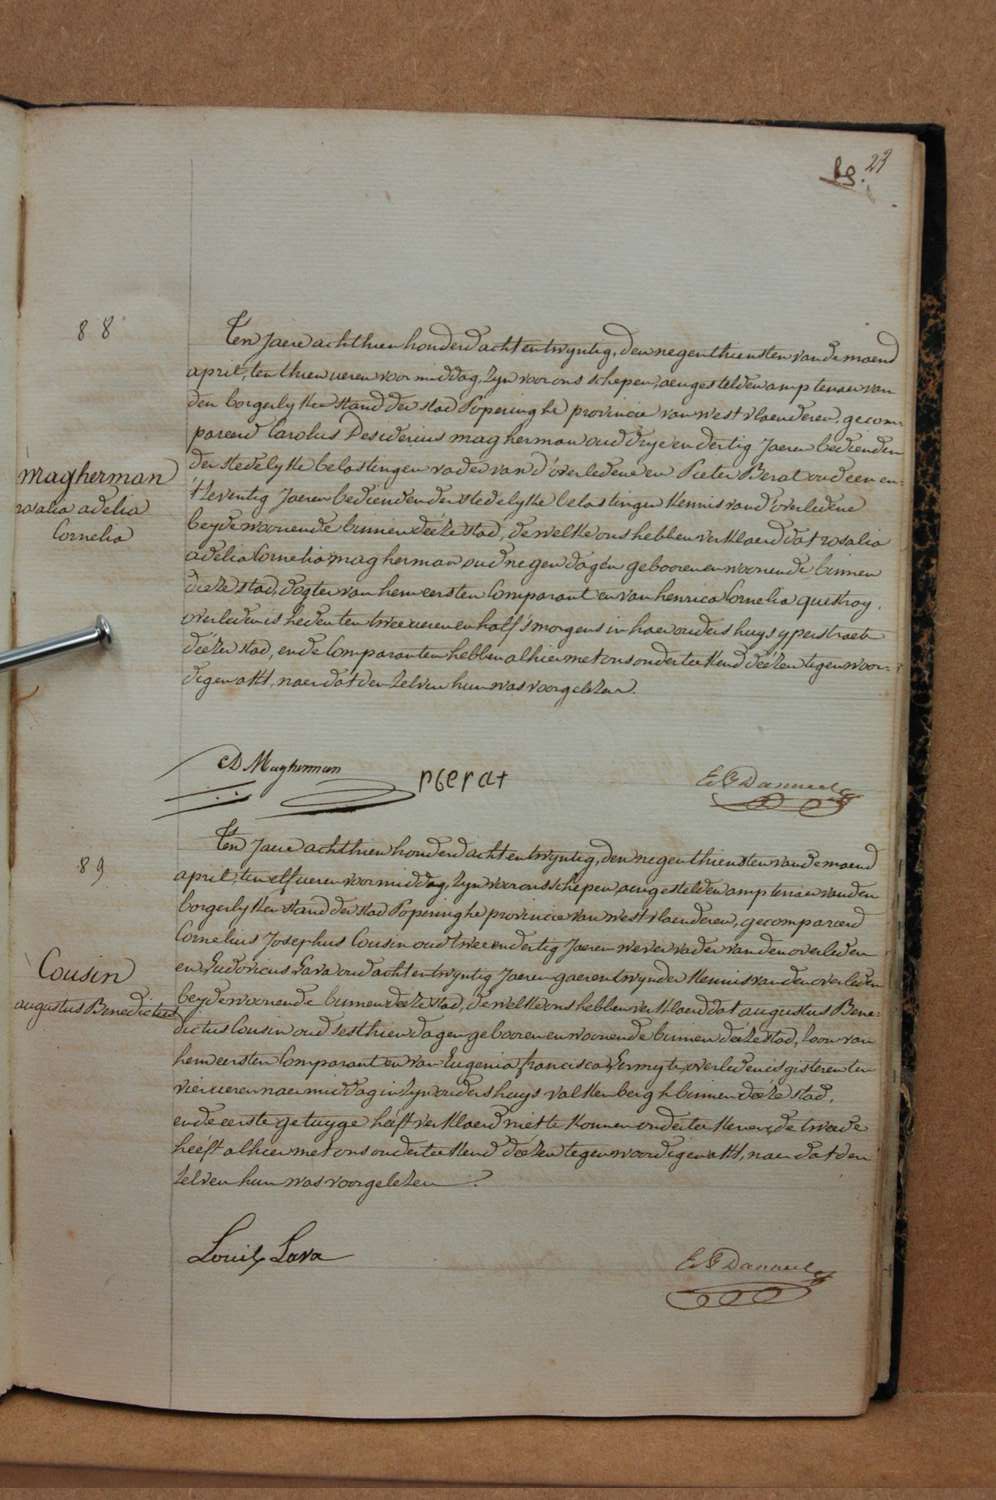 23
88
Magherman
rosalia adelia
Cornelia
Ten Jaere achthien honderd acht en twyntig, den negenthiensten van de maend
april, ten thien ueren voormiddag, Zyn voor ons schepen, aengestelden amptenaer van
den borgerlyken stand der stad Poperinghe provincie van westvlaenderen, gecom-
pareerd Carolus Desiderius magherman oud dryendertig Jaeren bedienden
der stedelyke belastingen vader van d'overledene en Pieter Berat oud een en
t'seventig Jaeren bedienden der stedelyke belastingen Kennis van d'overledene
beyde woonende binnen deéze stad, de welke ons hebben verklaerd dat rosalia
adelia Cornelia magherman oud negen dagen gebooren en woonende binnen
deéze stad, dogter van hem eersten Comparant en van henrica Cornelia questroy,
overleden is heden ten twee ueren en half s'morgens in haer ouders huys yperstraete
deéze stad, en de Comparanten hebben alhier met ons onderteekend deézen tegenwoor-
digen akt, naer dat den zelven hun was voorgelezen.
CD Magherman
pberat
E G Danneel
89
Cousin
augustus Benedictus
Ten Jaere achthien honderd acht en twyntig, den negenthiensten van de maend
april, ten elf ueren voormiddag, Zyn voor ons schepen, aengestelden amptenaer van den
borgerlyken stand der stad Poperinghe provincie van westvlaenderen, gecompareerd
Cornelius Josephus Cousin oud twee en dertig Jaeren wever vader van den overleden
en Ludovicus Lava oud acht en twyntig Jaeren gaerentwynder Kennis van den overleden
beyde woonende binnen deéze stad, de welke ons hebben verklaerd dat augustus Bene-
dictus Cousin oud sesthien dagen gebooren en woonende binnen deéze stad, Zoon van
hem eersten Comparant en van Eugenia francisca Lermyte, overleden is gisteren ten
vier ueren naermiddag in Zyn ouders huys valkenbergh binnen deéze stad,
en de eerste getuyge heéft verklaerd niet te konnen onderteekenen, de tweede
heéft alhier met ons onderteekend deézen tegenwoordigen akt, naer dat den
zelven hun was voorgelezen
Louis Lava
E G Danneel